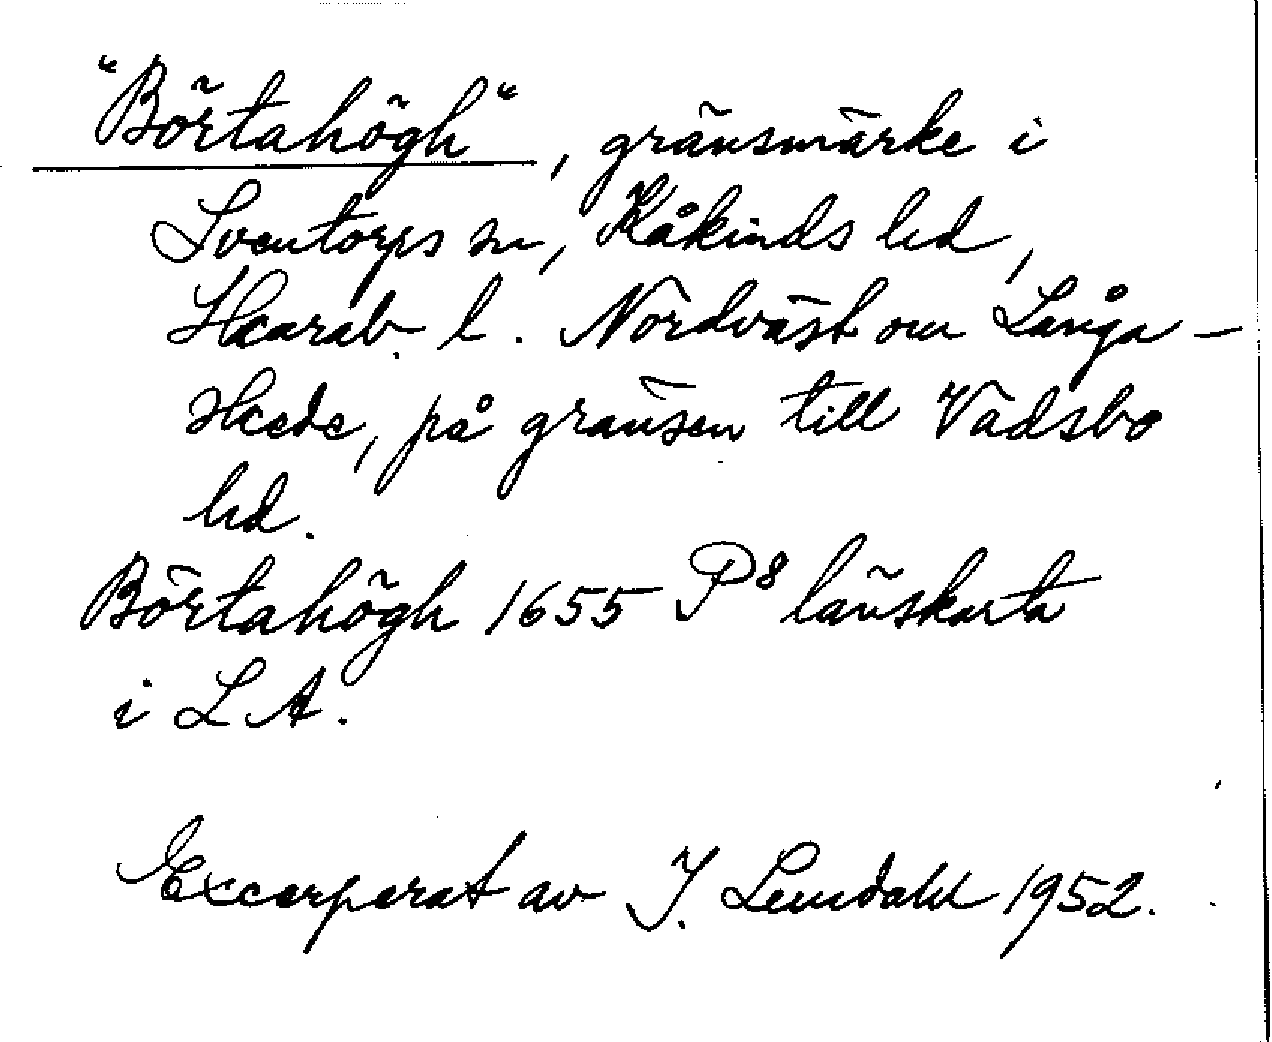 "Börtahögh", gränsmärke i
Sventorps sn, Kåkinds hd,
Skarab. l. Nordväst om Långa-
Hede, på gränsen till Vadsbo
hd.
Börtahögh 1655 P8 länskarta
i LA.
Excerperat av J. Lemdahl 1952.